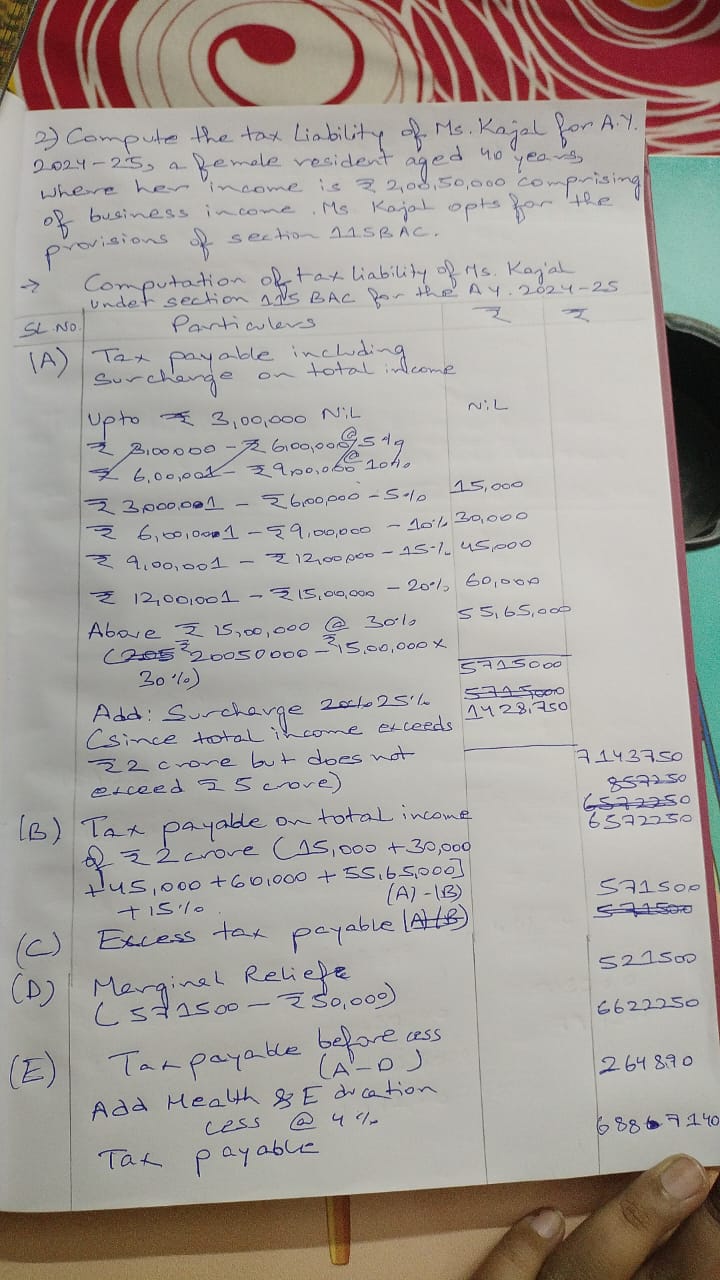 2) Compute the tax Liability of Ms. Kajal for A.Y.
2024-25, a female resident aged 40 years,
where her income is ₹ 2,00,50,000 comprising
of business income. Ms. Kajal opts for the
provisions of section 115BAC.
→ Computation of tax liability of Ms. Kajal
under section 115 BAC for the A.Y. 2024-25
SL. No. Particulers ₹ ₹
(A) Tax payable including
surcharge on total income
Upto ₹ 3,00,000 NiL NiL
₹ 3,00000 - ₹ 6,00,000 @ 5%
₹ 6,00,001 - ₹ 9,00,000 @ 10%
₹ 3,000,001 - ₹ 6,00,000 - 5% 15,000
₹ 6,00,0001 - ₹ 9,00,000 - 10% 30,000
₹ 9,00,001 - ₹ 12,00,000 - 15% 45,000
₹ 12,00,001 - ₹ 15,00,000 - 20% 60,000
Above ₹ 15,00,000 @ 30% 55,65,000
(205 ₹ 20050000 - ₹ 15,00,000 x
30%) 5715000
5715000
Add: Surcharge 25% 1428,750
(since total income exceeds
₹ 2 crore but does not 7143750
exceed ₹ 5 crore) 857250
6572250
(B) Tax payable on total income 6572250
of ₹ 2 crore (15,000 + 30,000
+45,000 +60,000 + 55,65,000]
+15%. (A)-(B) 571500
(C) Excess tax payable (A)(B) 571500
(D) Marginal Reliefe 521500
(571500 - ₹50,000)
(E) Tax payable before cess 6622250
(A-D)
Add Health & Education 264890
cess @ 4%
Tax payable 6887140